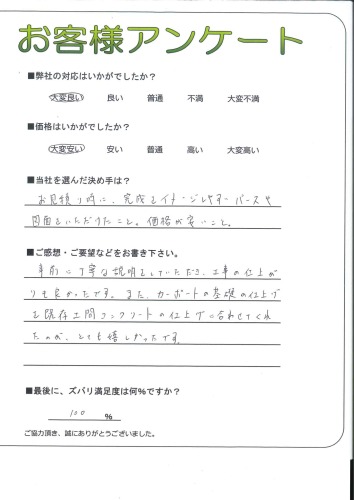 お客様アンケート
■弊社の対応はいかがでしたか？
大変良い 良い 普通 不満 大変不満
■価格はいかがでしたか？
大変安い 安い 普通 高い 大変高い
■当社を選んだ決め手は？
お見積り時に、完成をイメージしやすいパースや
図面をいただけたこと。価格が安いこと。
■ご感想・ご要望などをお書き下さい。
事前に丁寧な説明をしていただき、工事の仕上が
りも良かったです。また、カーポートの基礎の仕上げ
を既存土間コンクリートの仕上げに合わせてくれ
たのが、とても嬉しかったです。
■最後に、ズバリ満足度は何％ですか？
100 ％
ご協力頂き、誠にありがとうございました。